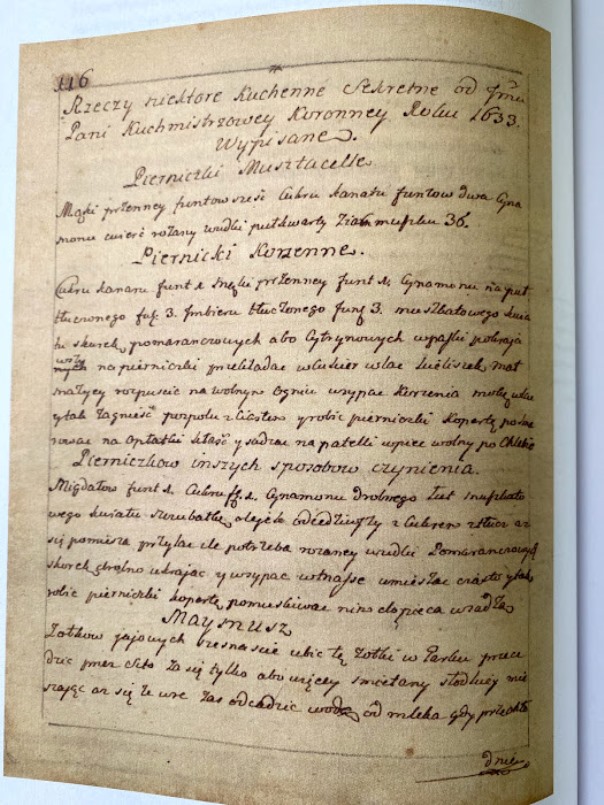 116
Rzeczy niektore Kuchenne Sekretne od Jmci
Pani Kuchmistrzowey Koronney Roku 1633.
Wypisane.
Pierniczki Musztacelle
Mąki przenney funtow sześć Cukru kanaru funtow dwa Cyna
monu cwierć rożany wudki puł kwarty 36.
Piernicki Korzenne.
Cukru kanaru funt 1 mąki przenney funt 1. Cynamonu na puł
tłuczonego 3. Imbieru tłuczonego 3. muszkatowego kwia
tu skurek pomaranczowych abo Cytrynowych w paski pokraja
wszy
na pierniczki przekładac w Cukier wlac
rozpuscic na wolnym Ogniu wsypac Korzenia mąkę wlac
y tak zagniesć pospołu z Ciastem y robic pierniczki Kopertę
na Opłatki kłasć y sadzac na patelli w piec wolny po Chlebie
Pierniczkow inszych sposobow czynienia.
Migdałow funt 1. Cukru 1. Cynamonu drobnego Łut muszkato
wego kwiatu olejek z Cukrem z tłuc az
się pomiesza przylac ile potrzeba rozaney wudki Pomaranczowych
skorek drobno ukrajac y wsypac umieszac ciasto y tak
robic pierniczki kopertę do pieca
Maymusz
Zołtkow jajowych szesnascie ubic te zołtki w Garku przece
dzic przez Sito tylko abo więcey smietany słodkiey mie
szając az się ze wre zas odcedzic wodę od mleka gdy przechło
dnie